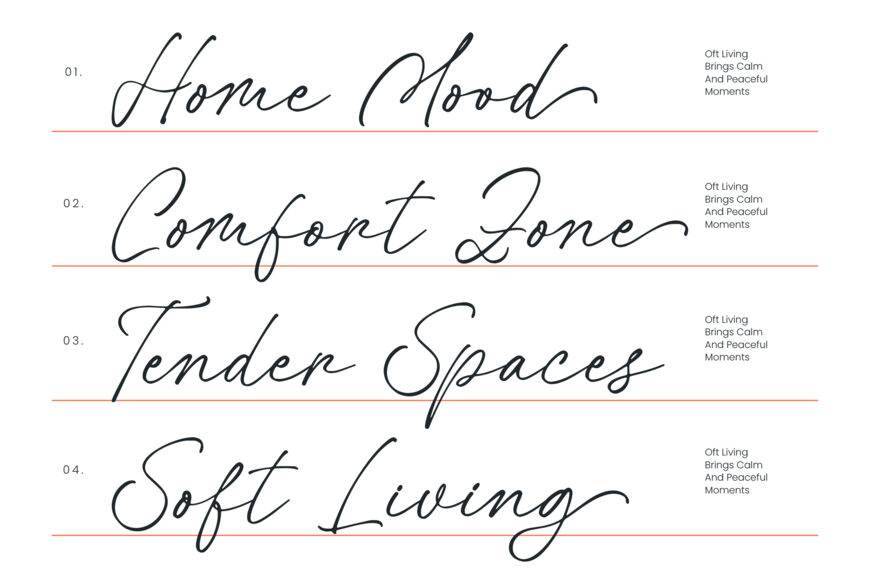 01.
Home Mood
Oft Living
Brings Calm
And Peaceful
Moments
02.
Comfort Zone
Oft Living
Brings Calm
And Peaceful
Moments
03.
Tender Spaces
Oft Living
Brings Calm
And Peaceful
Moments
04.
Soft Living
Oft Living
Brings Calm
And Peaceful
Moments